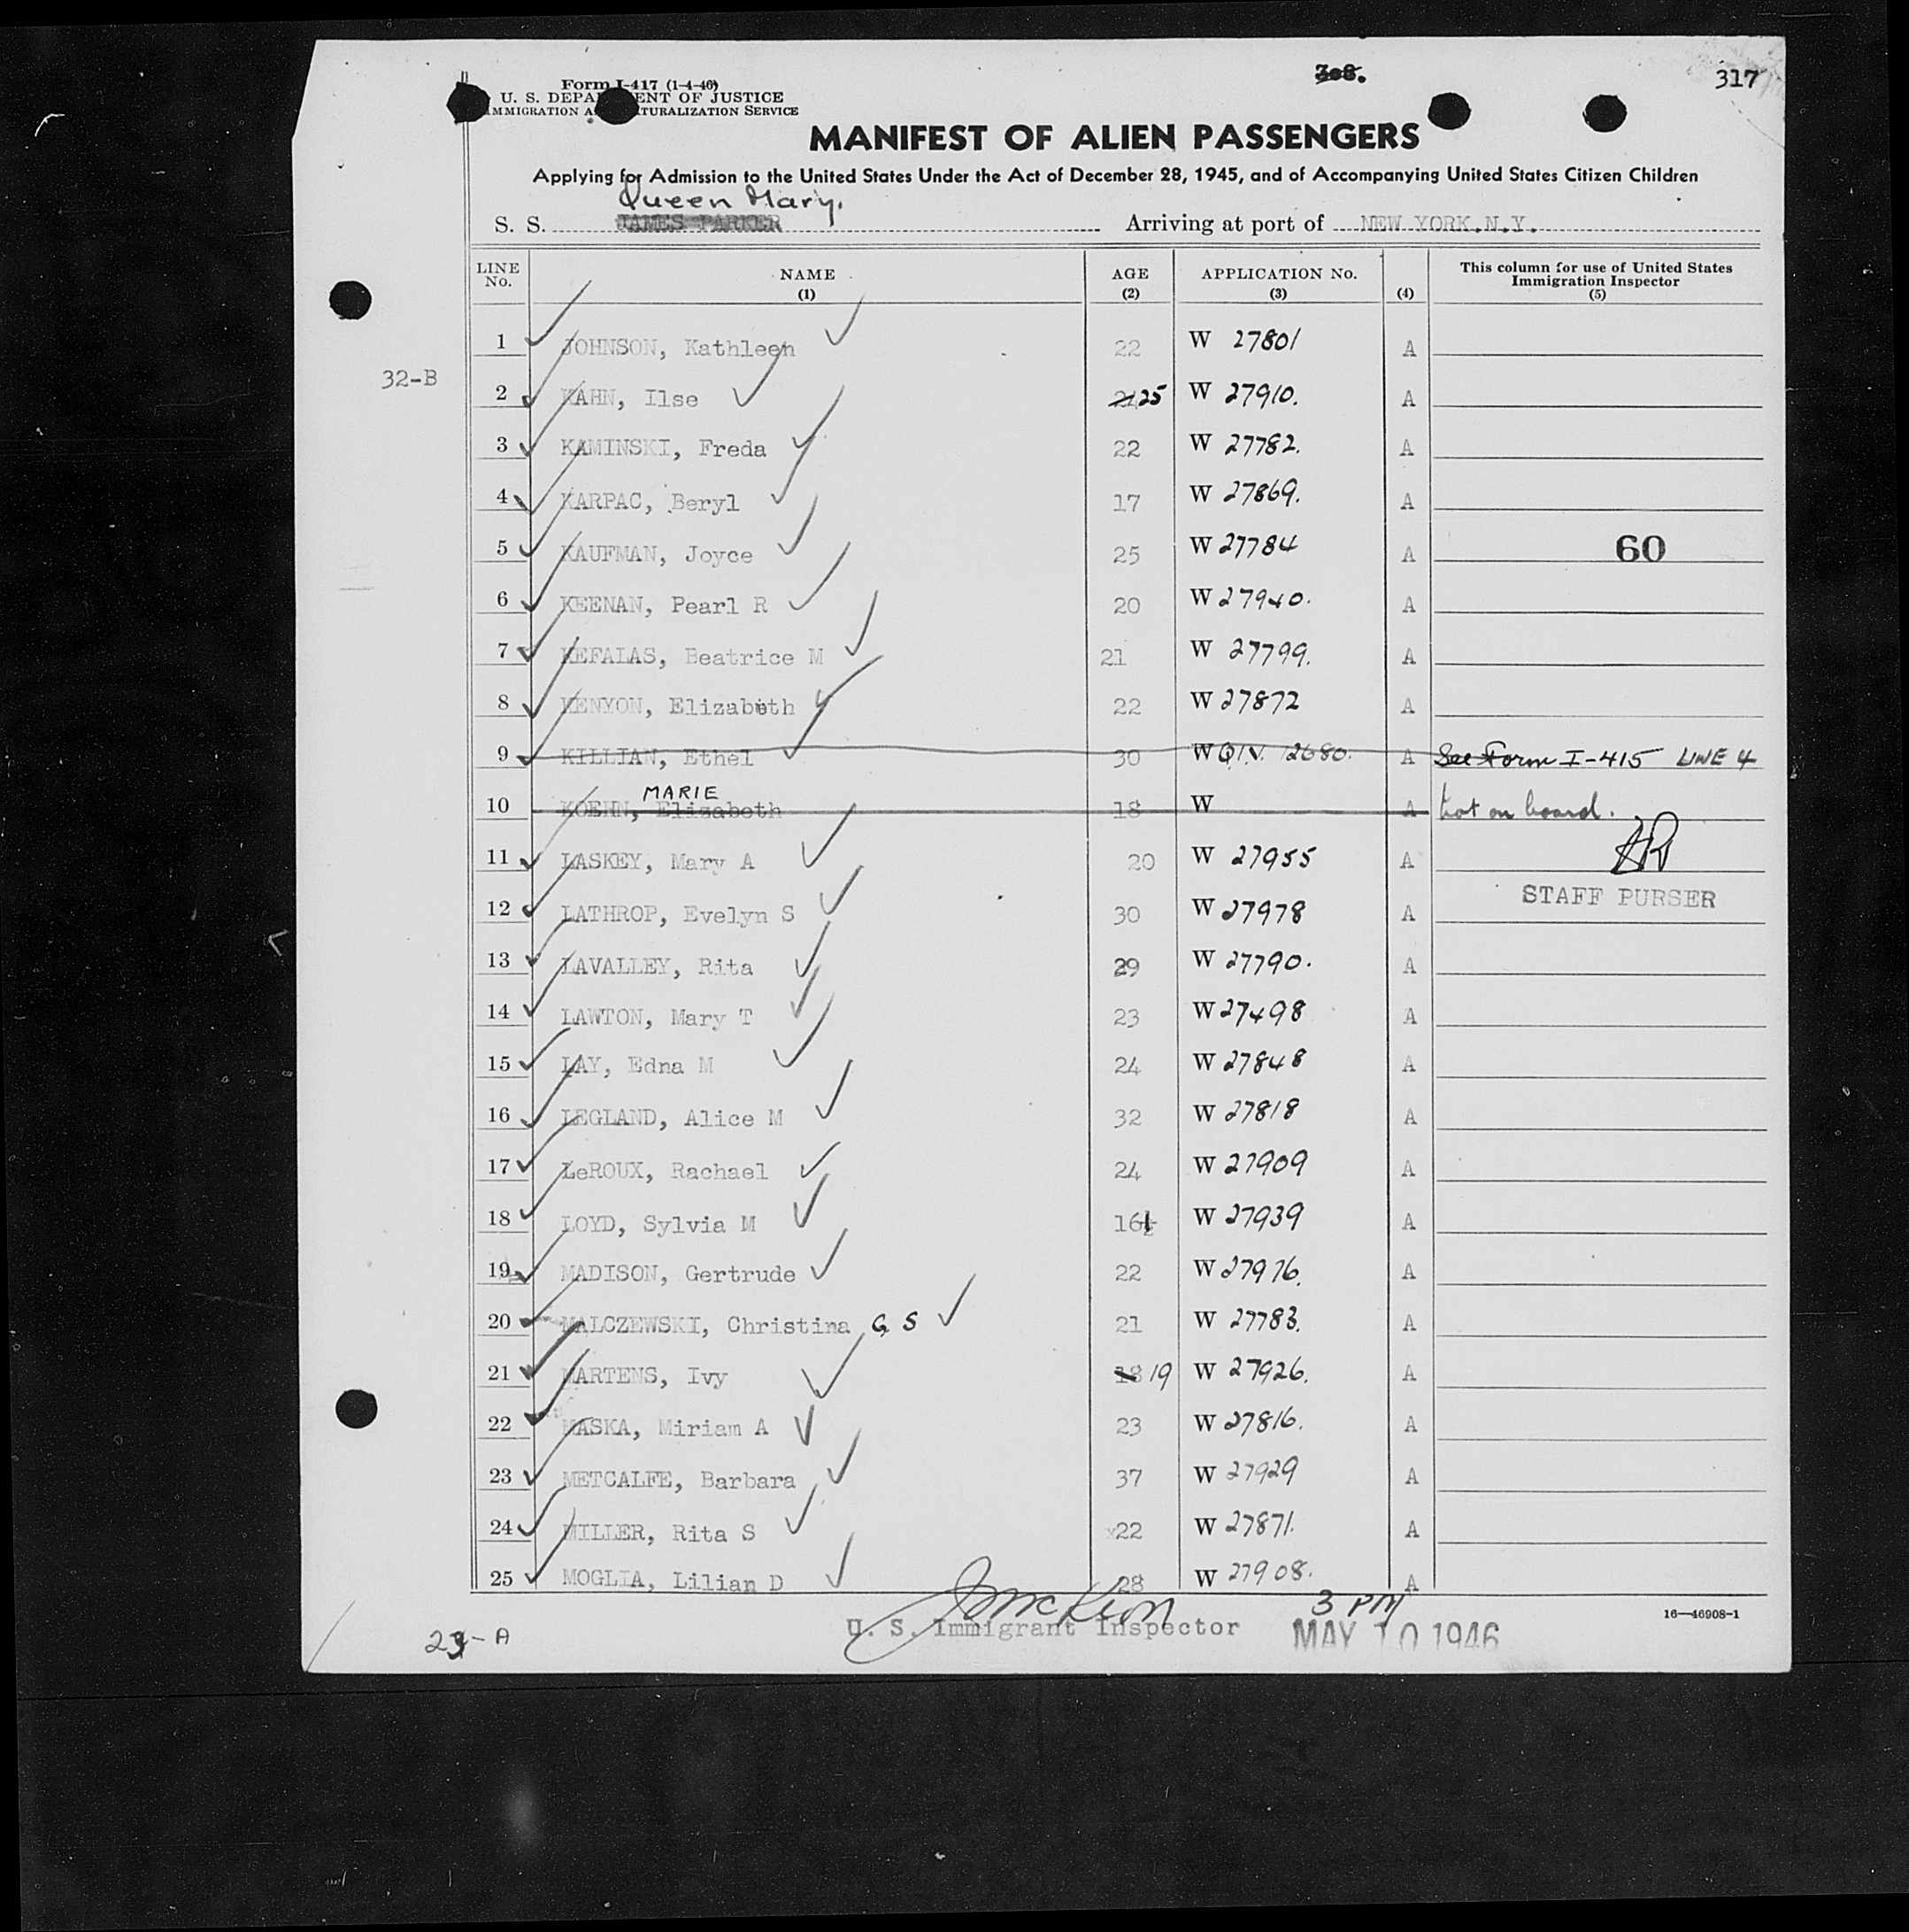 308. 317
Form I-417 (1-4-46)
U. S. DEPARTMENT OF JUSTICE
IMMIGRATION AND NATURALIZATION SERVICE
MANIFEST OF ALIEN PASSENGERS
Applying for Admission to the United States Under the Act of December 28, 1945, and of Accompanying United States Citizen Children
Queen Mary.
S. S. JAMES PARKER Arriving at port of NEW YORK.N.Y.
LINE No. NAME (1) AGE (2) APPLICATION No. (3) (4) This column for use of United States Immigration Inspector (5)
1 JOHNSON, Kathleen 22 W 27801 A
32-B
2 KAHN, Ilse 25 W 27910. A
3 KAMINSKI, Freda 22 W 27782. A
4 KARPAC, Beryl 17 W 27869. A
5 KAUFMAN, Joyce 25 W 27784 A 60
6 KEENAN, Pearl R 20 W 27940. A
7 KEFALAS, Beatrice M 21 W 27799. A
8 KENYON, Elizabeth 22 W 27872 A
9 KILLIAN, Ethel 30 W QIV. 12680. A See Form I-415 LINE 4
MARIE
10 KOEHN, Elizabeth 18 W A Not on board.
11 LASKEY, Mary A 20 W 27955 A
STAFF PURSER
12 LATHROP, Evelyn S 30 W 27978 A
13 LAVALLEY, Rita 29 W 27790. A
14 LAWTON, Mary T 23 W 27498 A
15 LAY, Edna M 24 W 27848 A
16 LEGLAND, Alice M 32 W 27818 A
17 LeROUX, Rachael 24 W 27909 A
18 LOYD, Sylvia M 16 W 27939 A
19 MADISON, Gertrude 22 W 27976. A
20 MALCZEWSKI, Christina G S 21 W 27783. A
21 MARTENS, Ivy 18 19 W 27926. A
22 MASKA, Miriam A 23 W 27816. A
23 METCALFE, Barbara 37 W 27929 A
24 MILLER, Rita S 22 W 27871. A
25 MOGLIA, Lilian D 28 W 27908. A
3 PM
16—46908-1
U. S. Immigrant Inspector MAY 10 1946
23-A